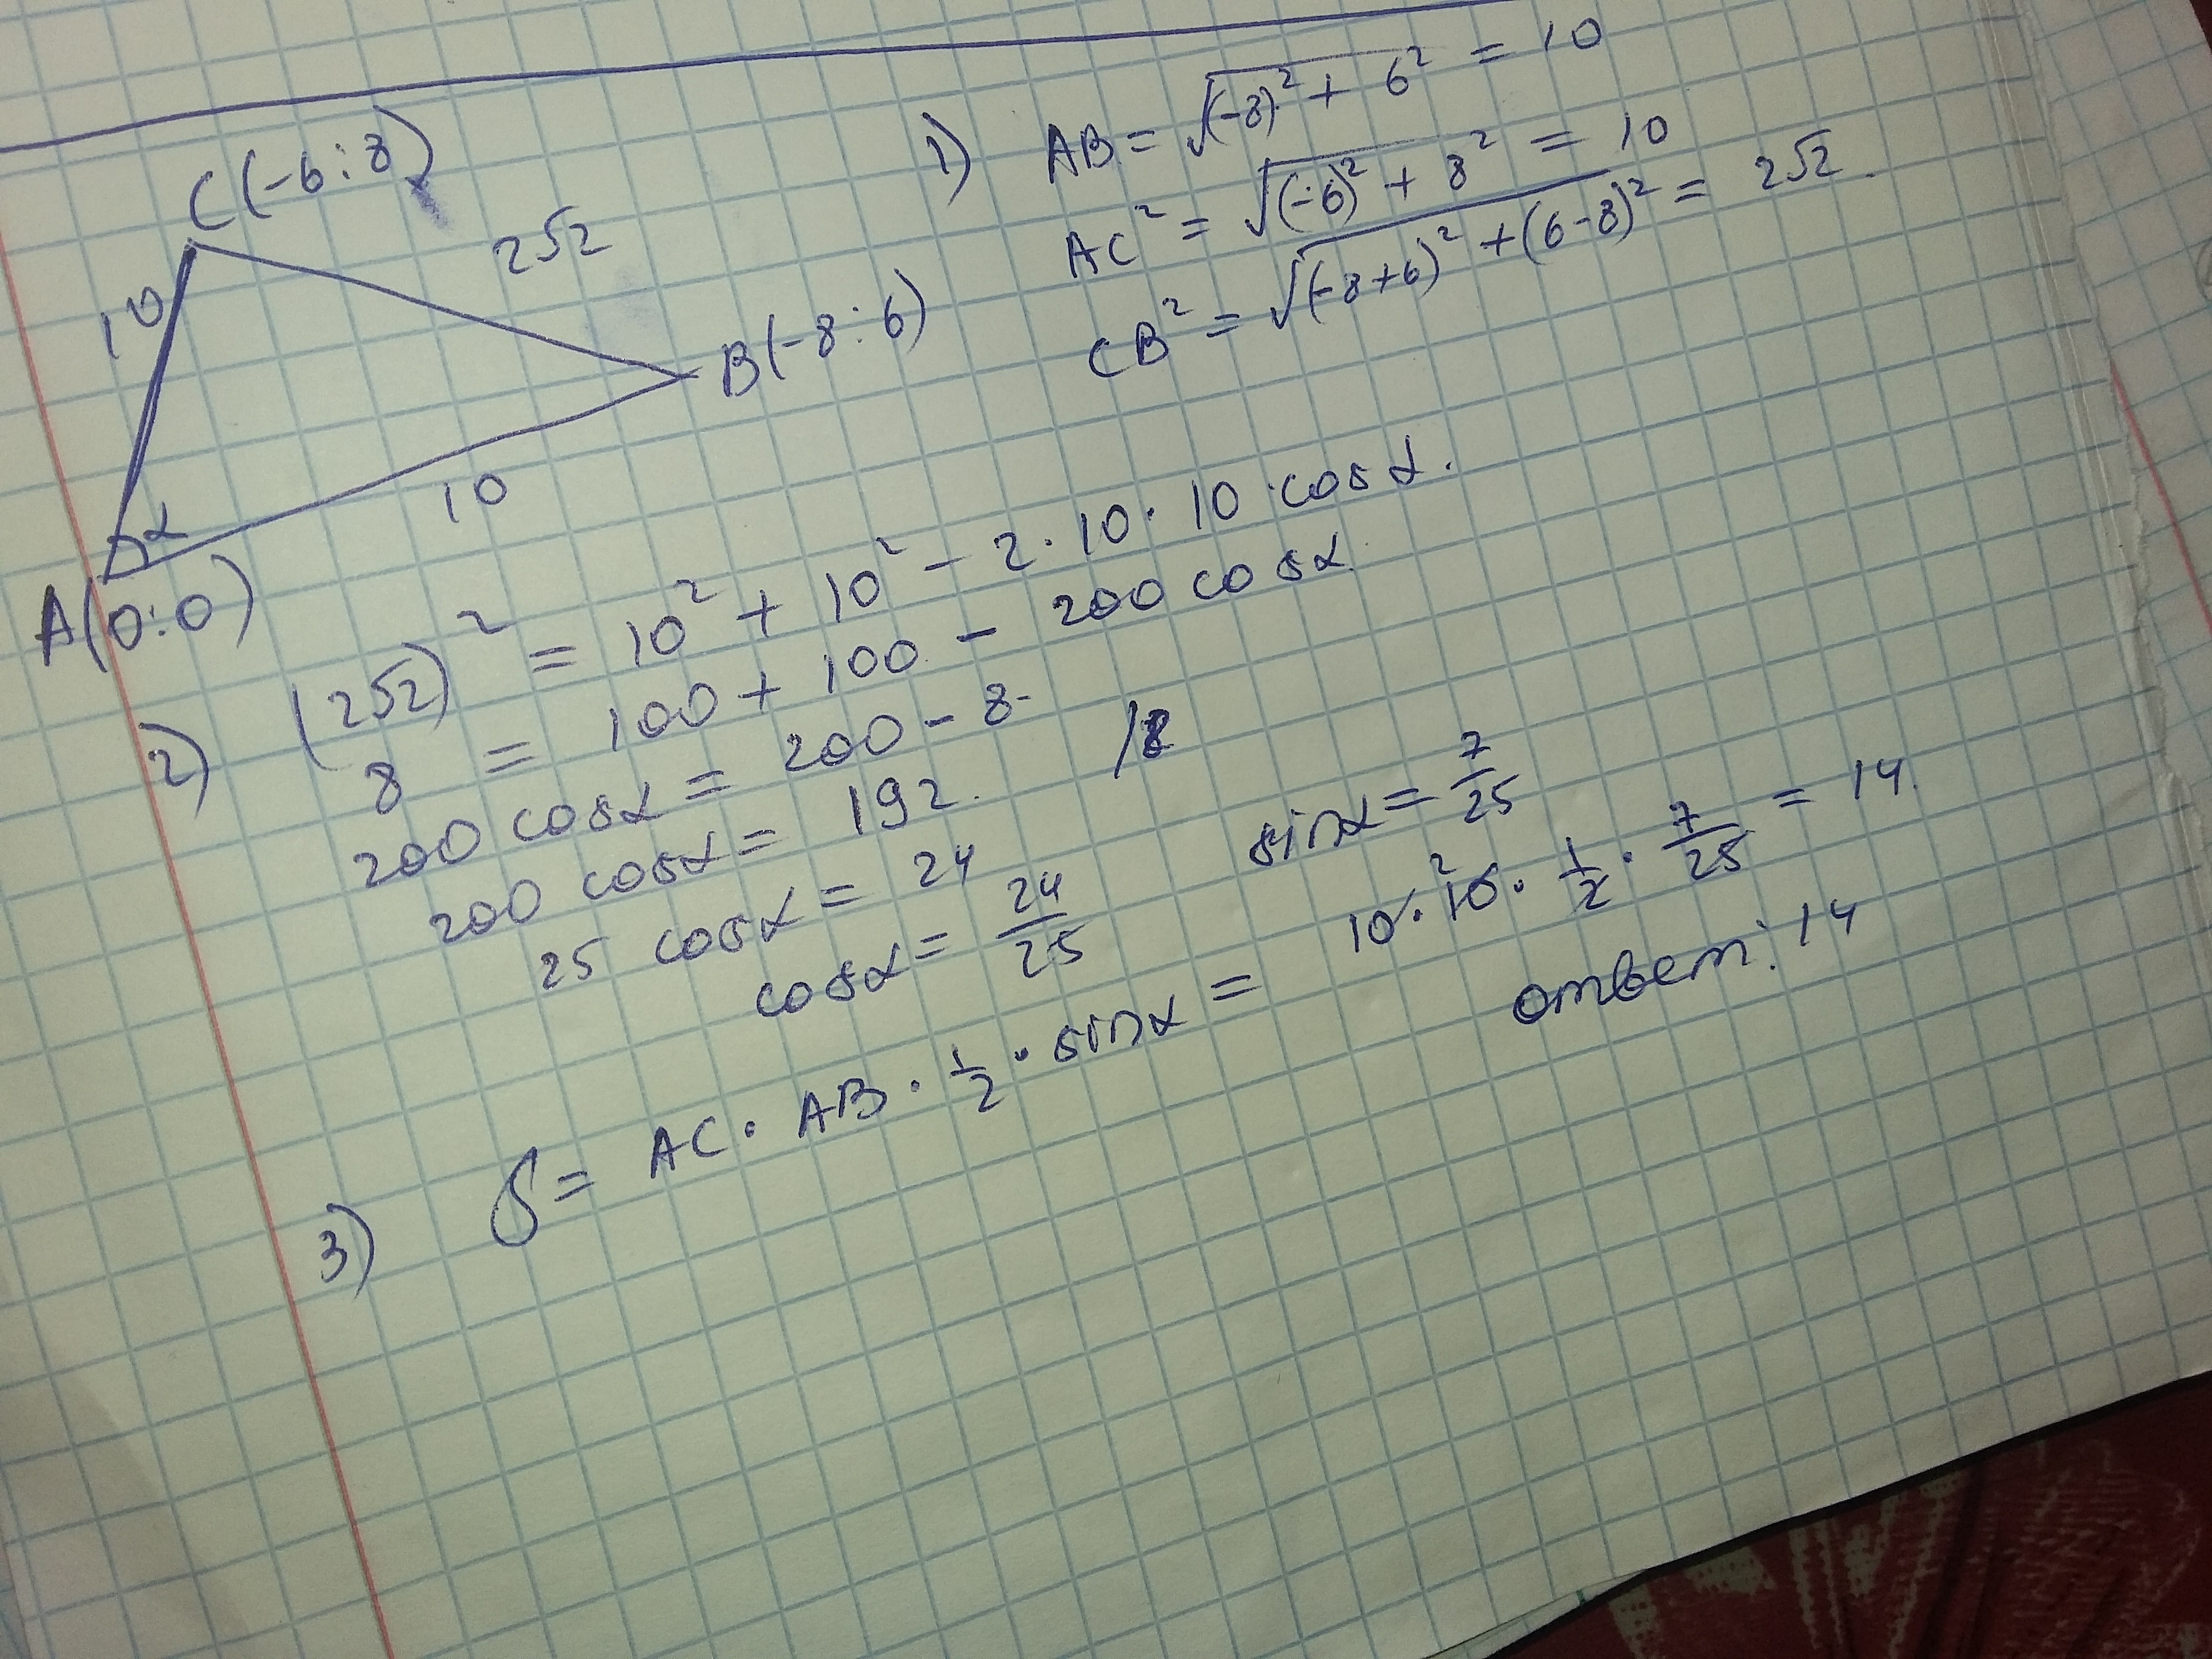 C(-6:8)
10
2√2
α
10
A(0:0)
B(-8:6)
1) AB = √(-8)² + 6² = 10
AC² = √(-6)² + 8² = 10
CB² = √(-8+6)² + (6-8)² = 2√2.
2) (2√2)² = 10² + 10² - 2·10·10·cosα.
8 = 100 + 100 - 200 cosα
200 cosα = 200 - 8.
200 cosα = 192.
25 cosα = 24
cosα = 24/25
sinα = 7/25
3) S = AC · AB · 1/2 · sinα =
10 · 10² · 1/2 · 7/25 = 14.
ответ: 14